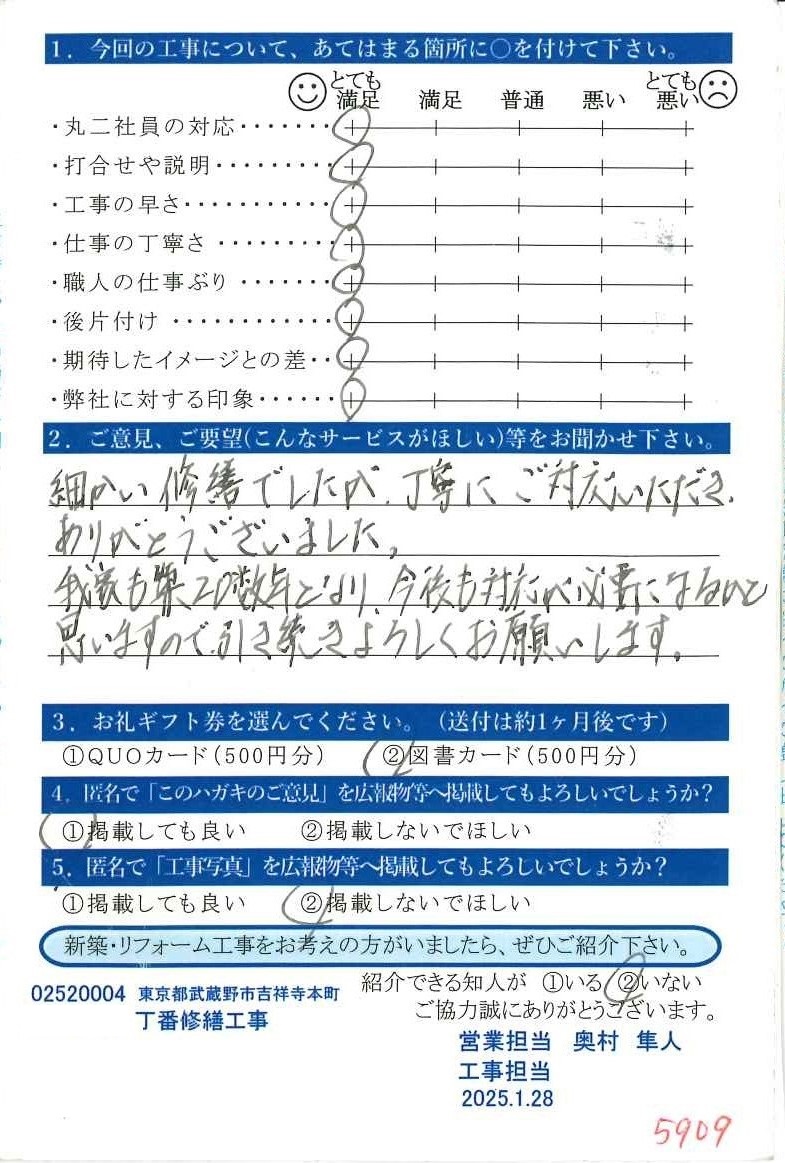 1. 今回の工事について、あてはまる箇所に○を付けて下さい。
とても満足 満足 普通 悪い とても悪い
・丸二社員の対応・・・・・・・
・打合せや説明・・・・・・・・・
・工事の早さ・・・・・・・・・・・
・仕事の丁寧さ・・・・・・・・・
・職人の仕事ぶり・・・・・・・
・後片付け・・・・・・・・・・・・
・期待したイメージとの差・・
・弊社に対する印象・・・・・・
2. ご意見、ご要望(こんなサービスがほしい)等をお聞かせ下さい。
細かい修繕でしたが、丁寧にご対応いただき、
ありがとうございました。
我家も築20数年となり、今後も対応が必要になるかと
思いますので、引き続きよろしくお願いします。
3. お礼ギフト券を選んでください。(送付は約1ヶ月後です)
①QUOカード(500円分) ②図書カード(500円分)
4. 匿名で「このハガキのご意見」を広報物等へ掲載してもよろしいでしょうか?
①掲載しても良い ②掲載しないでほしい
5. 匿名で「工事写真」を広報物等へ掲載してもよろしいでしょうか?
①掲載しても良い ②掲載しないでほしい
新築・リフォーム工事をお考えの方がいましたら、ぜひご紹介下さい。
紹介できる知人が ①いる ②いない
ご協力誠にありがとうございます。
02520004 東京都武蔵野市吉祥寺本町
丁番修繕工事
営業担当 奥村 隼人
工事担当
2025.1.28
5909